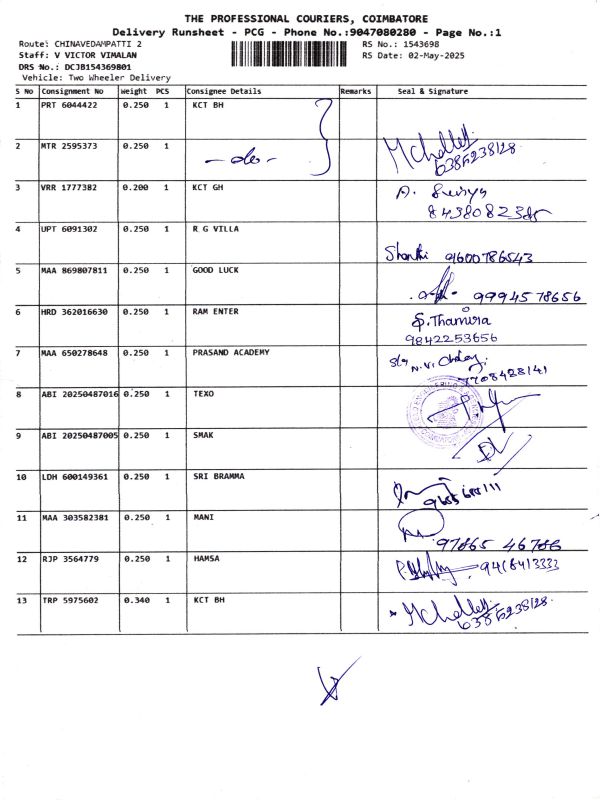 THE PROFESSIONAL COURIERS, COIMBATORE
Delivery Runsheet - PCG - Phone No.:9047080280 - Page No.:1
Route: CHINAVEDAMPATTI 2 RS No.: 1543698
Staff: V VICTOR VIMALAN RS Date: 02-May-2025
DRS No.: DCJB154369801
Vehicle: Two Wheeler Delivery
S No Consignment No Weight PCS Consignee Details Remarks Seal & Signature
1 PRT 6044422 0.250 1 KCT BH
2 MTR 2595373 0.250 1 -do- 6385238128
3 VRR 1777382 0.200 1 KCT GH
4 UPT 6091302 0.250 1 R G VILLA Shanthi 9600786543
5 MAA 869807811 0.250 1 GOOD LUCK 9994578656
6 HRD 362016630 0.250 1 RAM ENTER
9842253656
7 MAA 650278648 0.250 1 PRASAND ACADEMY
7708428141
8 ABI 20250487016 0.250 1 TEXO
9 ABI 20250487005 0.250 1 SMAK
10 LDH 600149361 0.250 1 SRI BRAMMA
11 MAA 303582381 0.250 1 MANI
97865 46786
12 RJP 3564779 0.250 1 HAMSA
13 TRP 5975602 0.340 1 KCT BH
6385238128